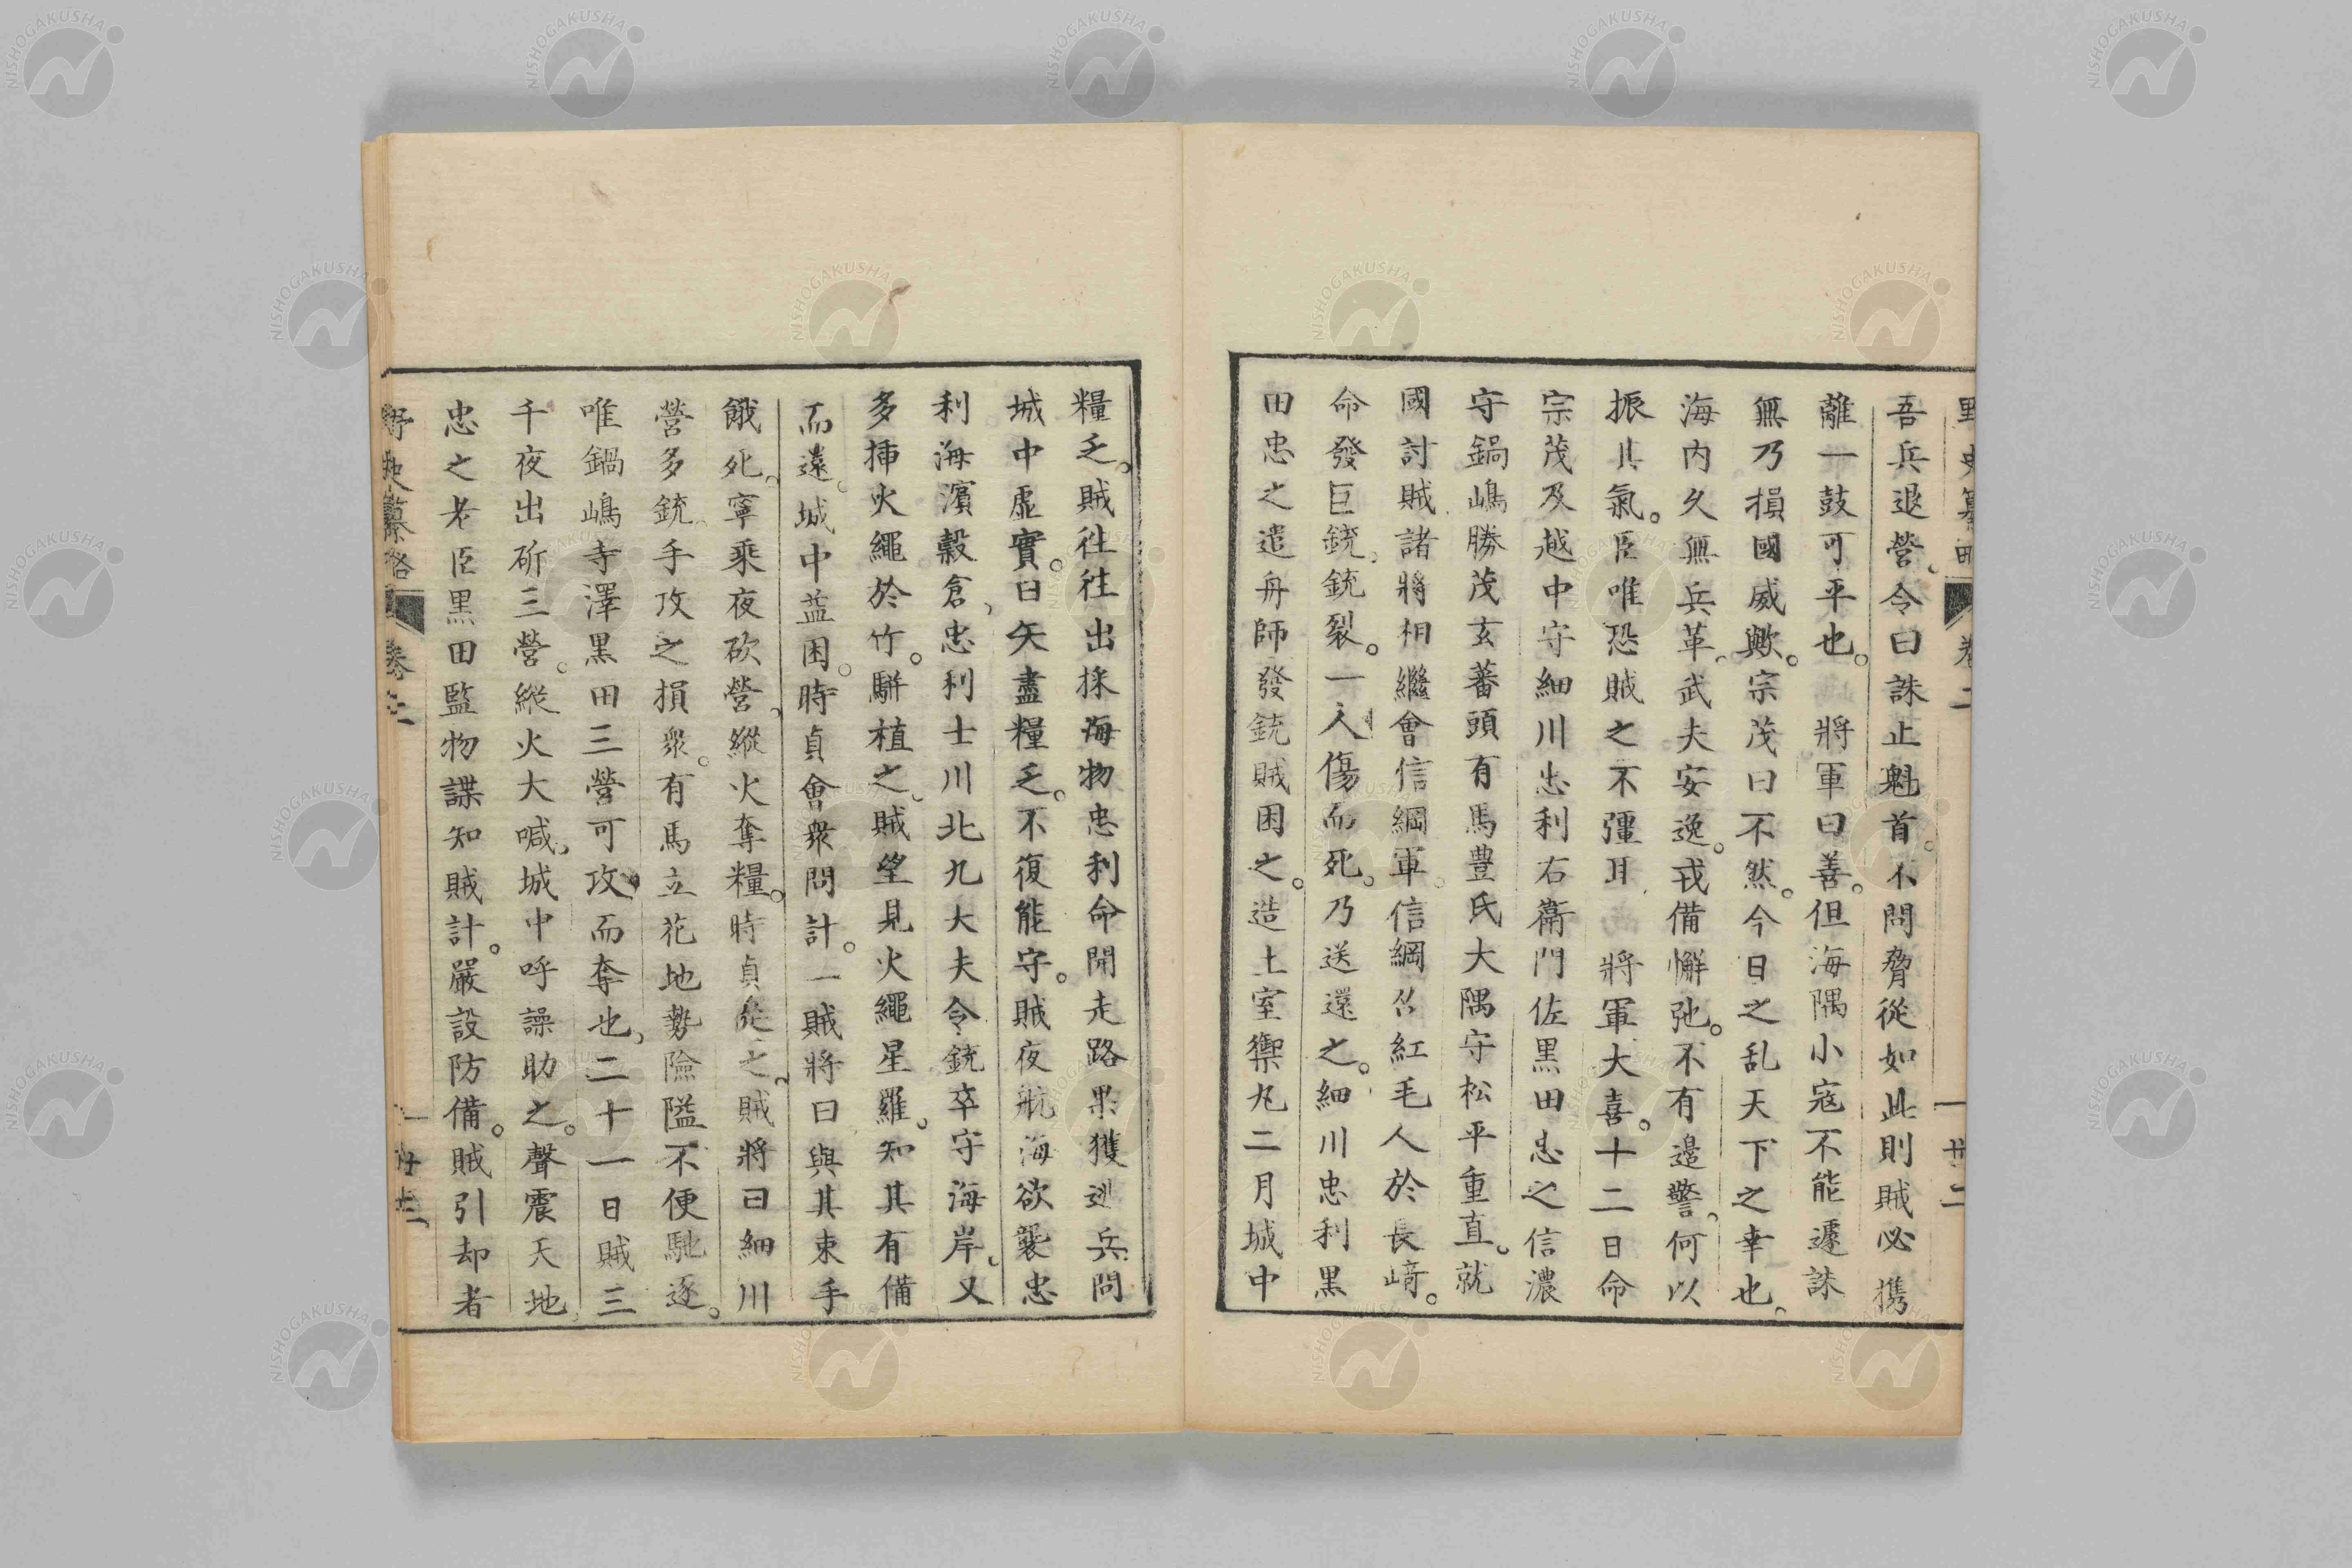 吾兵退營、令曰誅止魁首。不問脅從如此則賊必携
離一鼓可平也。 將軍曰善。但海隅小寇不能遽誅
無乃損國威歟。宗茂曰不然。今日之乱天下之幸也。
海内久無兵革、武夫安逸。戎備懈弛。不有邊警、何以
振其氣。臣唯恐賊之不彊耳 將軍大喜。十二日命
宗茂及越中守細川忠利右衛門佐黒田忠之信濃
守鍋嶋勝茂玄蕃頭有馬豊氏大隅守松平重直。就
國討賊、諸將相繼會信綱軍。信綱召紅毛人於長﨑。
命發巨銃、銃裂。一人傷而死。乃送還之。細川忠利黒
田忠之遣舟師發銃賊困之。造土室禦丸二月城中
糧乏。賊往往出採海物忠利命開走路果獲逃兵問
城中虚實。曰矢盡糧乏。不復能守。賊夜航海欲襲忠
利海濱穀倉、忠利士川北九大夫令銃卒守海岸、又
多挿火繩於竹。駢植之、賊望見火繩星羅。知其有備
而還。城中益困。時貞會衆問計。一賊將曰與其束手
餓死、寧乘夜砍營、縱火奪糧。時貞從之、賊將曰細川
營多銃、手攻之損衆。有馬立花地勢險隘不便馳逐。
唯鍋嶋寺澤黒田三營可攻而奪也、二十一日賊三
千夜出斫三營。縱火大喊、城中呼譟助之。聲震天地、
忠之老臣黒田監物諜知賊計。嚴設防備。賊引却者
野史纂略 卷二